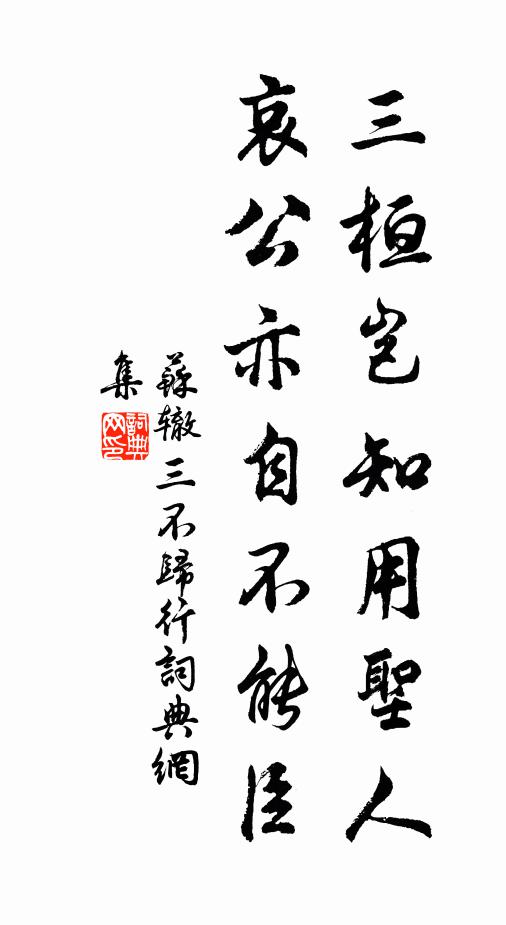 三桓岂知用聖人
哀公亦自不能臣
蘇辙三不歸行詞典網
集
詞典
网印